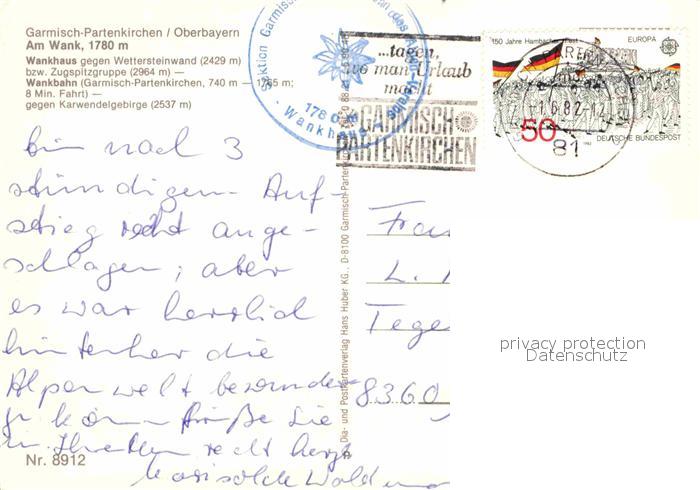 Garmisch-Partenkirchen / Oberbayern
Am Wank, 1780 m
Wankhaus gegen Wettersteinwand (2429 m)
bzw. Zugspitzgruppe (2964 m) —
Wankbahn (Garmisch-Partenkirchen, 740 m — 1755 m;
8 Min. Fahrt) —
gegen Karwendelgebirge (2537 m)
Sektion Garmisch-
1780 m
- Wankhaus -
...tagen,
wo man Urlaub
macht
GARMISCH
PARTENKIRCHEN
150 Jahre Hambacher Fest
EUROPA
50
DEUTSCHE BUNDESPOST
-1.6.82-12
81
bin nach 3
stündigem Auf-
stieg recht ange-
schlagen; aber
es war herrlich
hinterher die
Alpenwelt besonder-
Grüße Sie
recht herzl.
Nr. 8912
Dia- und Postkartenverlag Hans Huber KG., D-8100 Garmisch-Partenkirchen
Frau
L.
Tege
8360
privacy protection
Datenschutz